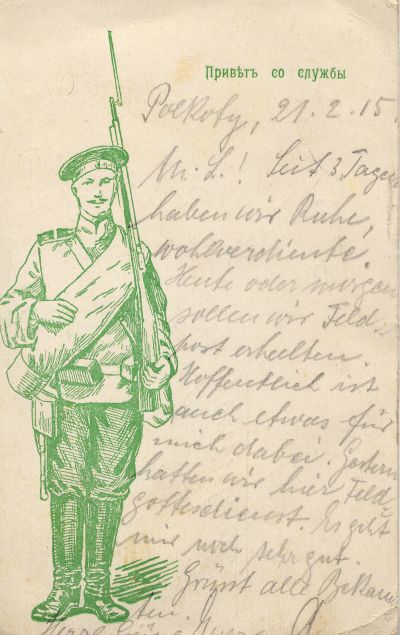 Привѣтъ со службы
Polkoty, 21.2.15.
M. L.! Seit 3 Tagen
haben wir Ruhe,
wohlverdiente.
Heute oder morgen
sollen wir Feld-
post erhalten.
Hoffentlich ist
auch etwas für
mich dabei. Gestern
hatten wir hier Feld
gottesdienst. Es geht
mir noch sehr gut.
Grüsst alle Bekann
ten.